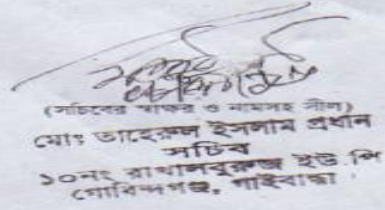 (সচিবের স্বাক্ষর ও নামসহ সীল)
মোঃ তাহেরুল ইসলাম প্রধান
সচিব
১০নং রাখালবুরুজ ইউ পি
গোবিন্দগঞ্জ, গাইবান্ধা।